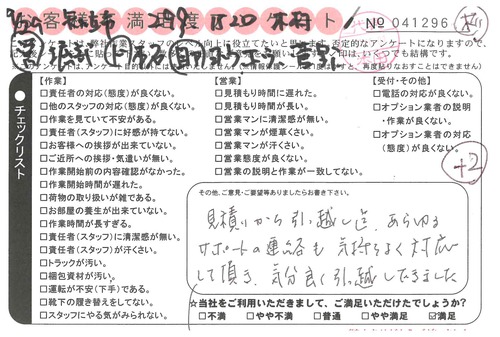 お客様満足度アンケート
№041296
チェックリスト
【作業】
□責任者の対応(態度)が良くない。
□他のスタッフの対応(態度)が良くない。
□作業を見ていて不安がある。
□責任者(スタッフ)に好感が持てない。
□お客様への挨拶が出来ていない。
□ご近所への挨拶・気遣いが無い。
□作業開始前の内容確認がなかった。
□作業開始時間が遅れた。
□荷物の取り扱いが雑である。
□お部屋の養生が出来ていない。
□作業時間が長すぎる。
□責任者(スタッフ)に清潔感が無い。
□責任者(スタッフ)が汗くさい。
□トラックが汚い。
□梱包資材が汚い。
□運転が不安(下手)である。
□靴下の履き替えをしてない。
□スタッフにやる気がみられない。
【営業】
□見積もり時間に遅れた。
□見積もり時間が長い。
□営業マンに清潔感が無い。
□営業マンが煙草くさい。
□営業マンが汗くさい。
□営業態度が良くない。
□営業の説明と作業が一致してない。
【受付・その他】
□電話の対応が良くない。
□オプション業者の説明
・作業が良くない。
□オプション業者の対応
(態度)が良くない。
+2
その他、ご意見・ご要望等ありましたらお書き下さい。
見積りから引っ越し迄、あらゆる
サポートの連絡も気持ちよく対応
して頂き、気分良く引っ越しできました
☆当社をご利用いただきまして、ご満足いただけたでしょうか?
□不満 □やや不満 □普通 □やや満足 ☑満足